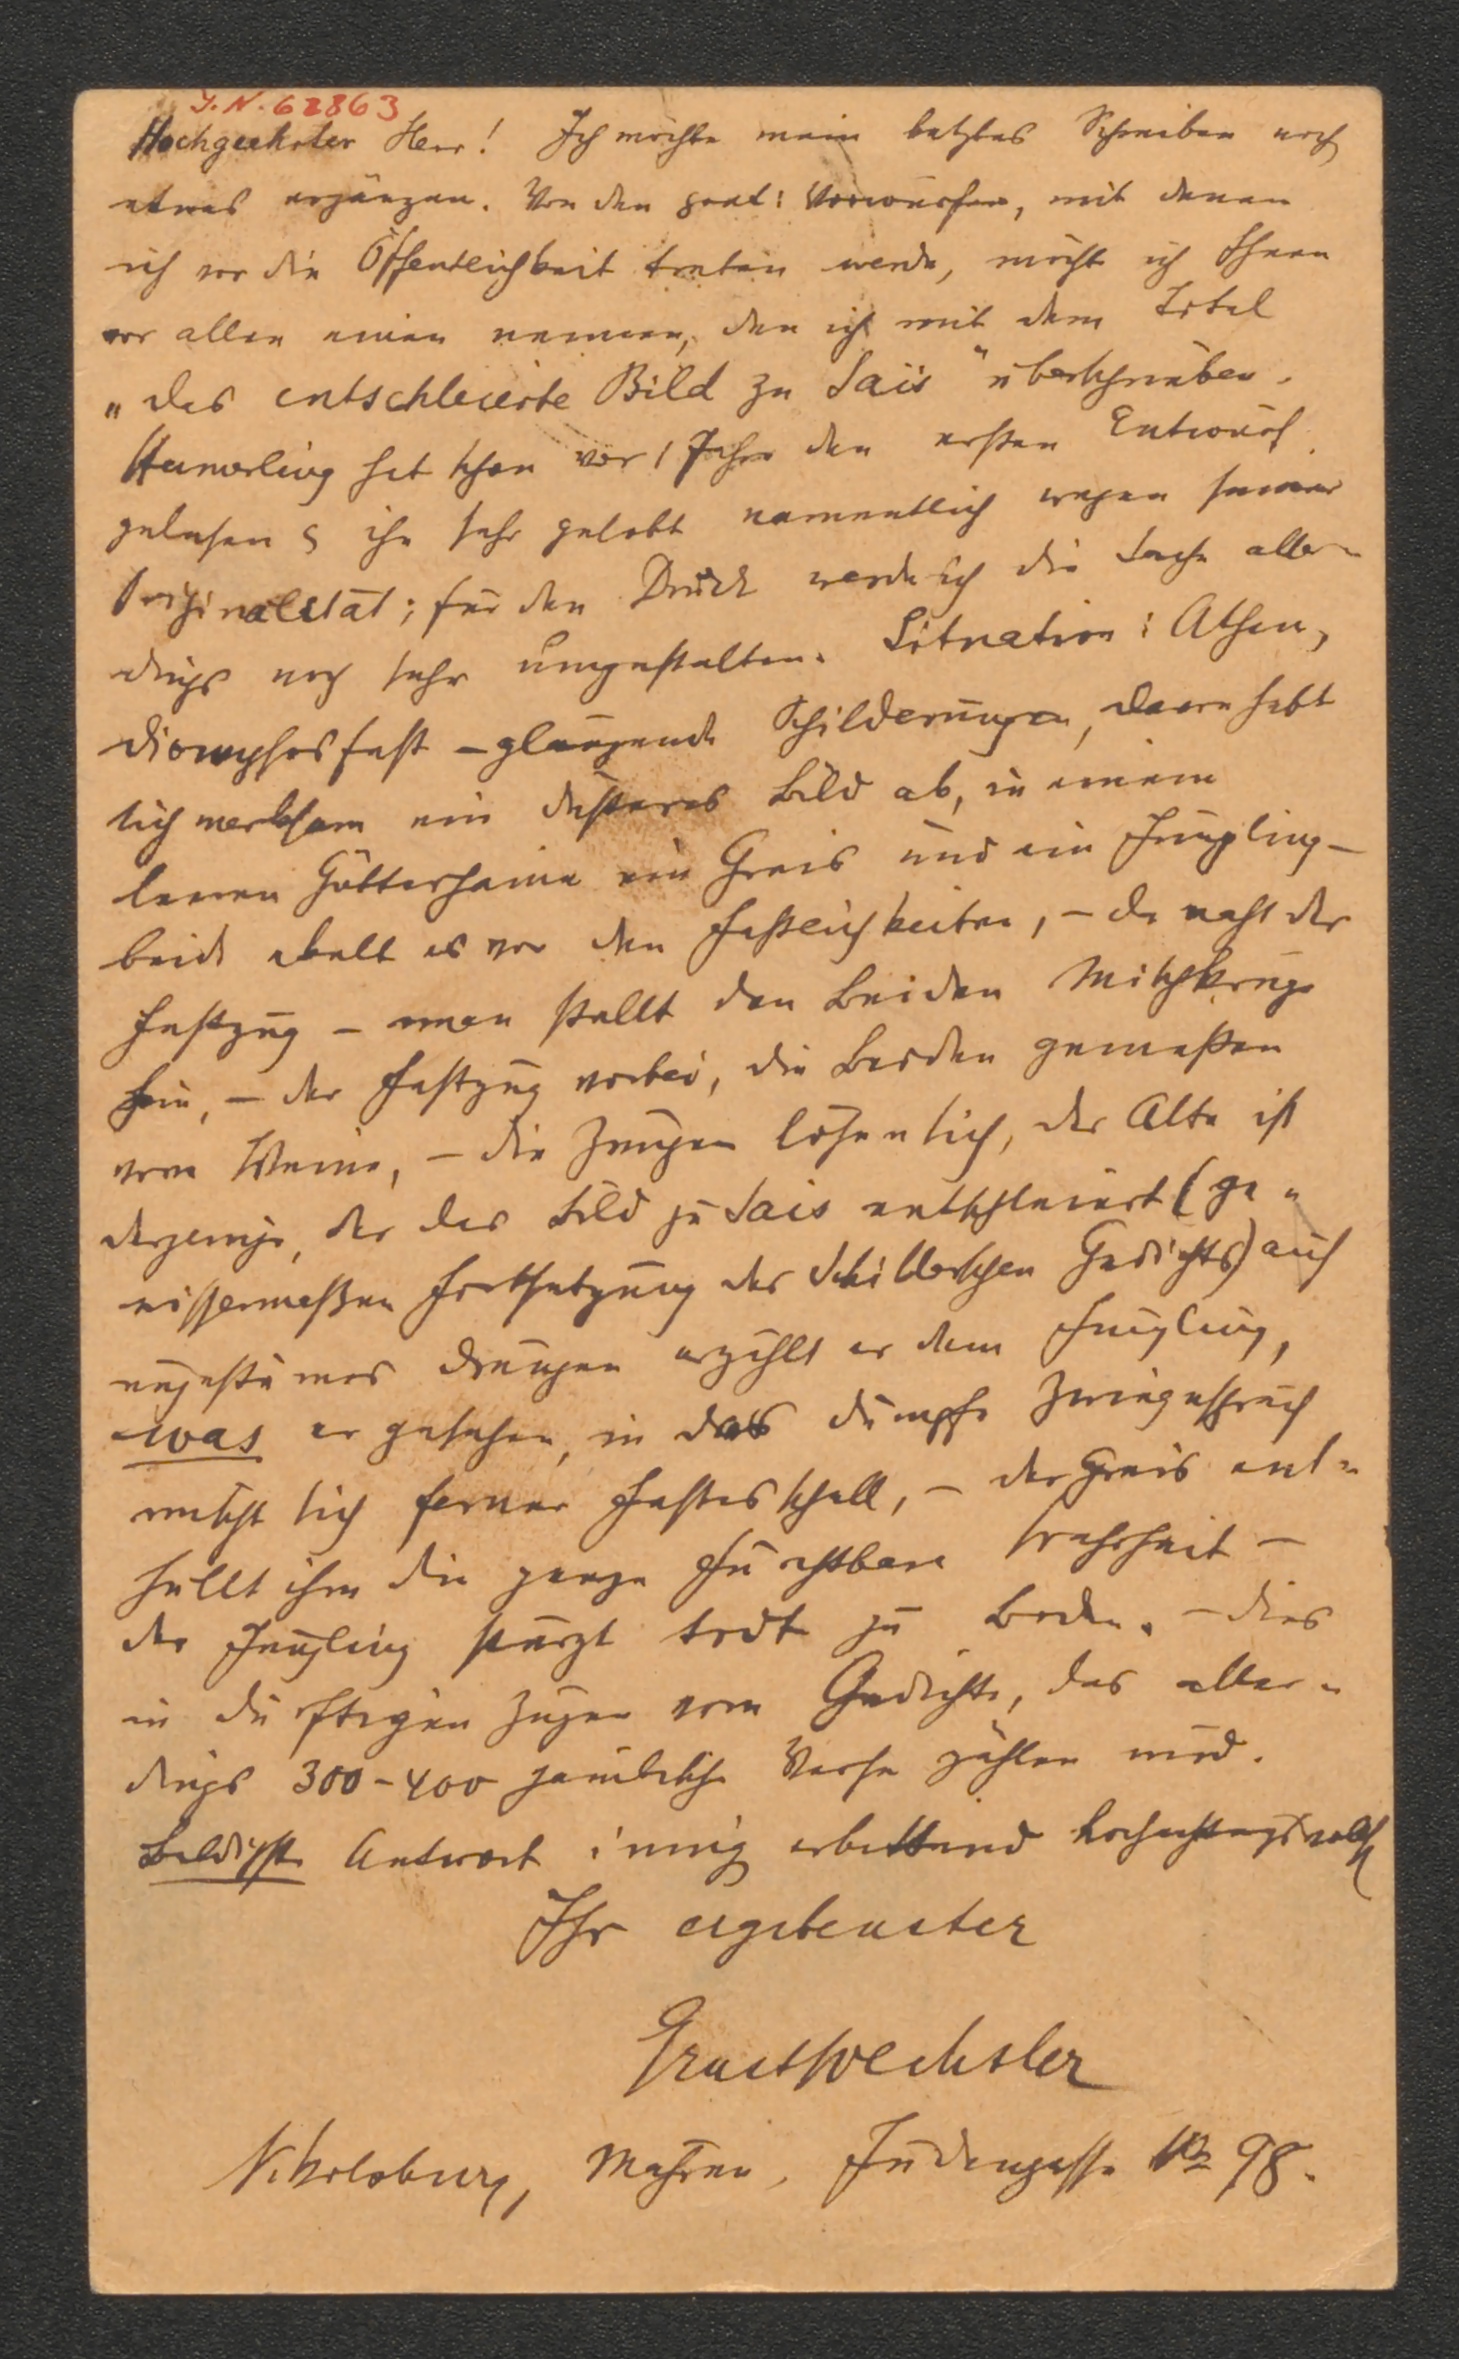 J. N. 62863
Hochgeehrter Herr! Ich möchte mein letztes Schreiben noch
etwas ergänzen. Von den poet: Vorwürfen, mit denen
ich vor die Öffentlichkeit treten werde, möcht ich Ihnen
vor allen einen nennen, den ich mit dem Titel
„das entschleierte Bild zu Sais" überschrieben.
Hamerling hat schon vor 1 Jahr den ersten Entwurf
gelesen & ihn sehr gelobt namentlich wegen seiner
Originalität; für den Druck werde ich die Sache aller-
dings noch sehr umgestalten. Situation: Athen,
Dionysosfest – glänzende Schilderungen, davon hebt
sich ein düsteres Bild ab, in einem
leeren Götterhaine ein Greis und ein Jüngling –
beide ekelt es vor den Festlichkeiten, – da naht der
Festzug – man stellt den Beiden Mischkrüge
hin, – der Festzug vorbei, die Beiden genießen
vom Weine, – die Zungen lösen sich, der Alte ist
derjenige, der das Bild zu Sais entschleiert (ge-
wissermaßen Fortsetzung des Schillerschen Gedichts) auf
ungestümes Drängen erzählt er dem Jüngling,
was er gesehen, in das dumpfe Zwiegespräch
mischt sich ferner Festesschall, – der Greis ent-
hüllt ihm die ganze furchtbare Wahrheit –
der Jüngling stürzt todt zu Boden. – dies
in dürftigen Zügen vom Gedichte, das aller-
dings 300–400 jambische Verse zählen wird.
Baldigste Antwort innig erbittend hochachtungsvollst
Ihr ergebenster
Ernst Wechsler
Nikolsburg, Mähren, Judengasse No 98.